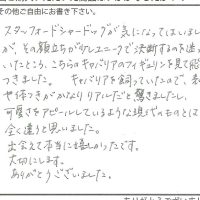 その他ご自由にお書き下さい。
スタッフォードシャードッグが気になってはいまし
が、その顔立ちがリレユニークで決断するのを迷っ
いたところ、こちらのキャバリアのフィギュリンを見て惚
つきました。キャバリアを飼っていたので、表
や体つきがかなりリアルだと驚きました。
可愛さをアピールしているような現代のものとは
全く違うと思いました。
出会えて本当に嬉しかったです。
大切にします。
ありがとうございました。